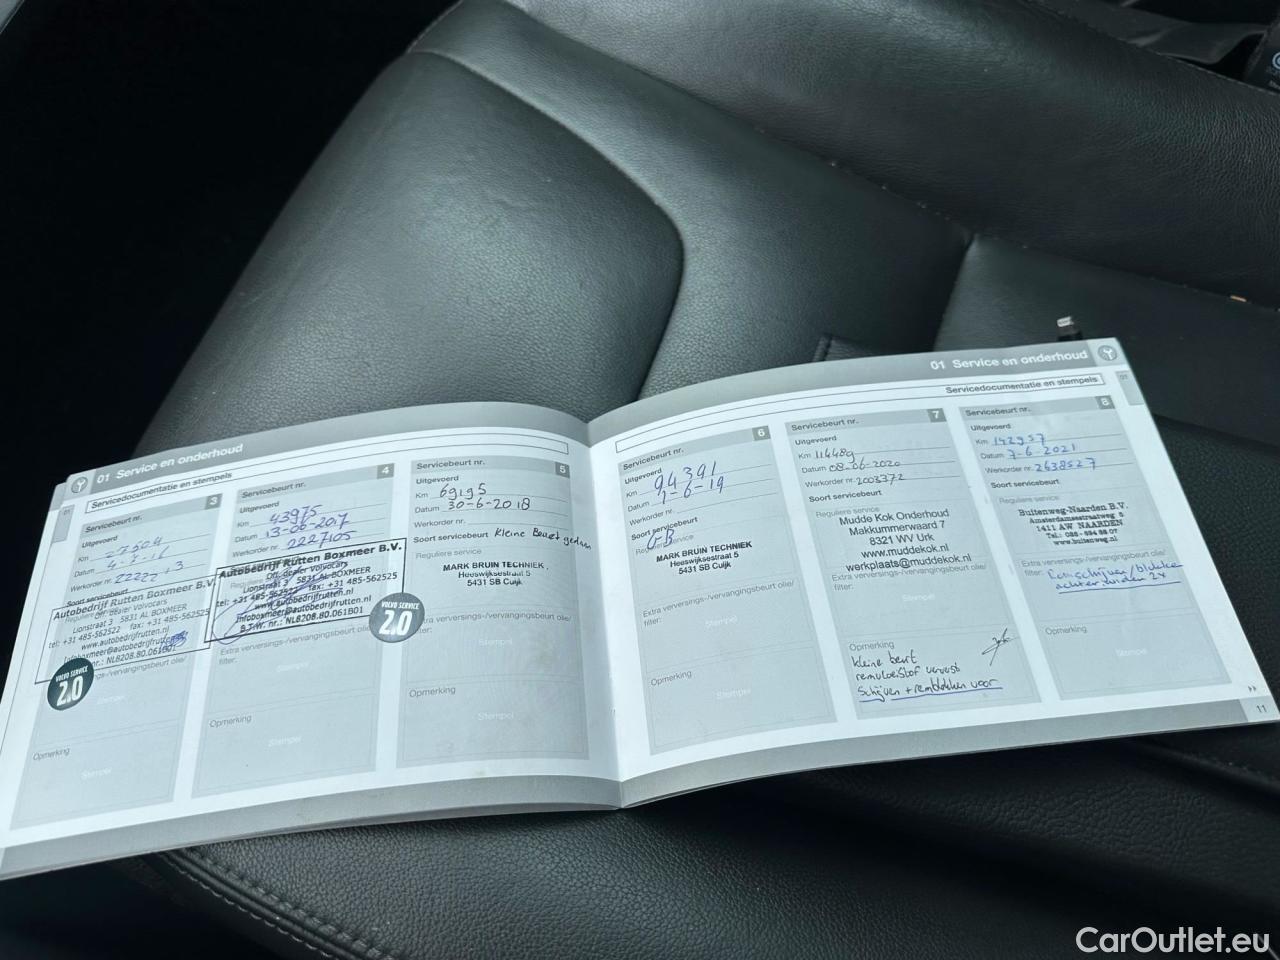 01 Service en onderhoud
Servicedocumentatie en stempels
3
Servicebeurt nr.
Uitgevoerd
Km 27504
Datum
Werkorder nr. 22222
Soort servicebeurt
Autobedrijf Rutten Boxmeer B.V.
Off. dealer Volvocars
Lionstraat 3 5831 AL BOXMEER
tel: +31 485-562522 fax: +31 485-562525
www.autobedrijfrutten.nl
VOLVO SERVICE
2.0
Opmerking
Stempel
4
Servicebeurt nr.
Uitgevoerd
Km 43975
Datum 13-06-2017
Werkorder nr. 2227105
Autobedrijf Rutten Boxmeer B.V.
Off. dealer Volvocars
Lionstraat 3 5831 AL BOXMEER
tel: +31 485-562522 fax: +31 485-562525
www.autobedrijfrutten.nl
infoboxmeer@autobedrijfrutten.nl
B.T.W. nr.: NL8208.80.061B01
VOLVO SERVICE
2.0
Extra verversings-/vervangingsbeurt olie/
filter:
Stempel
Opmerking
Stempel
5
Servicebeurt nr.
Uitgevoerd
Km 69195
Datum 30-6-2018
Werkorder nr.
Soort servicebeurt Kleine Beurt gedaan
Reguliere service
MARK BRUIN TECHNIEK
Heeswijksestraat 5
5431 SB Cuijk
Extra verversings-/vervangingsbeurt olie/
filter:
Stempel
Opmerking
Stempel
01 Service en onderhoud
Servicedocumentatie en stempels
6
Servicebeurt nr.
Uitgevoerd
Km 94391
Datum 7-6-19
Werkorder nr.
Soort servicebeurt
Reguliere service
GB
MARK BRUIN TECHNIEK
Heeswijksestraat 5
5431 SB Cuijk
Extra verversings-/vervangingsbeurt olie/
filter:
Stempel
Opmerking
Stempel
7
Servicebeurt nr.
Uitgevoerd
Km 114489
Datum 08-06-2020
Werkorder nr. 2003372
Soort servicebeurt
Reguliere service
Mudde Kok Onderhoud
Makkummerwaard 7
8321 WV Urk
www.muddekok.nl
werkplaats@muddekok.nl
Extra verversings-/vervangingsbeurt olie/
filter:
Stempel
Opmerking
kleine beurt
remvloeistof ververst
Schijven + remblokken voor
8
Servicebeurt nr.
Uitgevoerd
Km 142957
Datum 7-6-2021
Werkorder nr. 2638527
Soort servicebeurt
Reguliere service
Buitenweg-Naarden B.V.
Amsterdamsestraatweg 5
1411 AW NAARDEN
www.buitenweg.nl
Extra verversings-/vervangingsbeurt olie/
filter: Remschijven/blokken
achter
Opmerking
Stempel
11
CarOutlet.eu